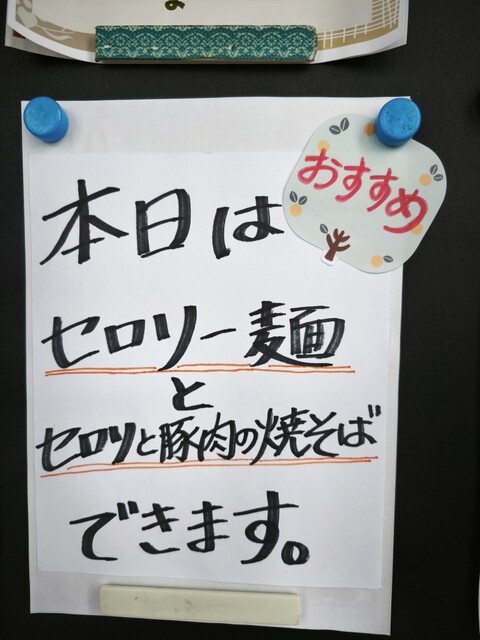 本日は
おすすめ
セロリー麺
と
セロリと豚肉の焼そば
できます。